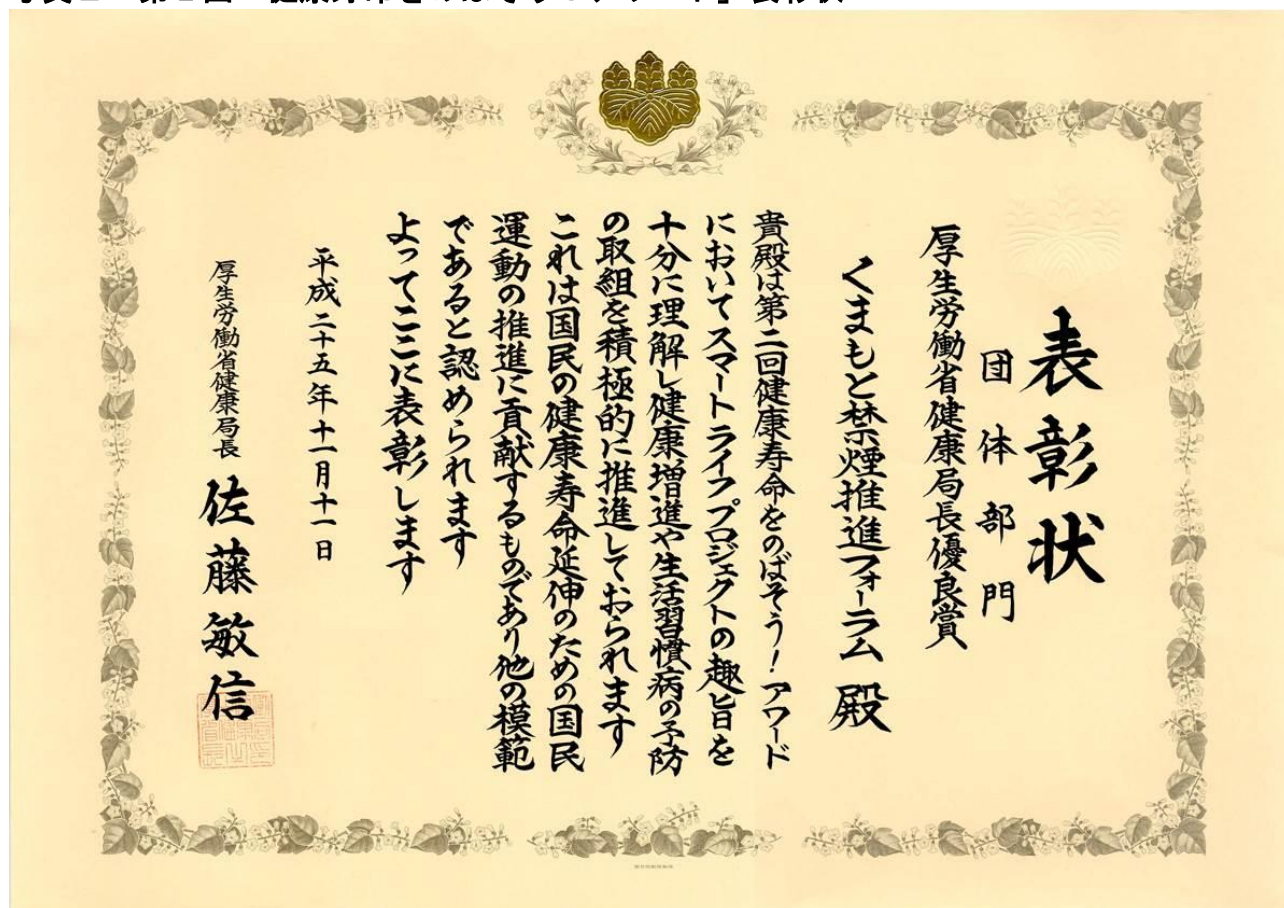 表彰状
団体部門
厚生労働省健康局長優良賞
くまもと禁煙推進フォーラム 殿
貴殿は第二回健康寿命をのばそう!アワード
においてスマートライフプロジェクトの趣旨を
十分に理解し健康増進や生活習慣病の予防
の取組を積極的に推進しておられます
これは国民の健康寿命延伸のための国民
運動の推進に貢献するものであり他の模範
であると認められます
よってここに表彰します
平成二十五年十一月十一日
厚生労働省健康局長 佐藤敏信